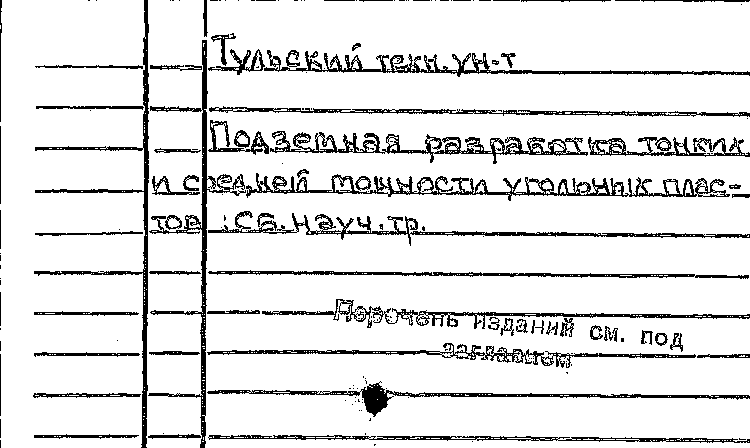 Тульский техн. ун-т
Подземная разработка тонких
и средней мощности угольных плас-
тов : Сб. науч. тр.
Перечень изданий см. под
заглавием